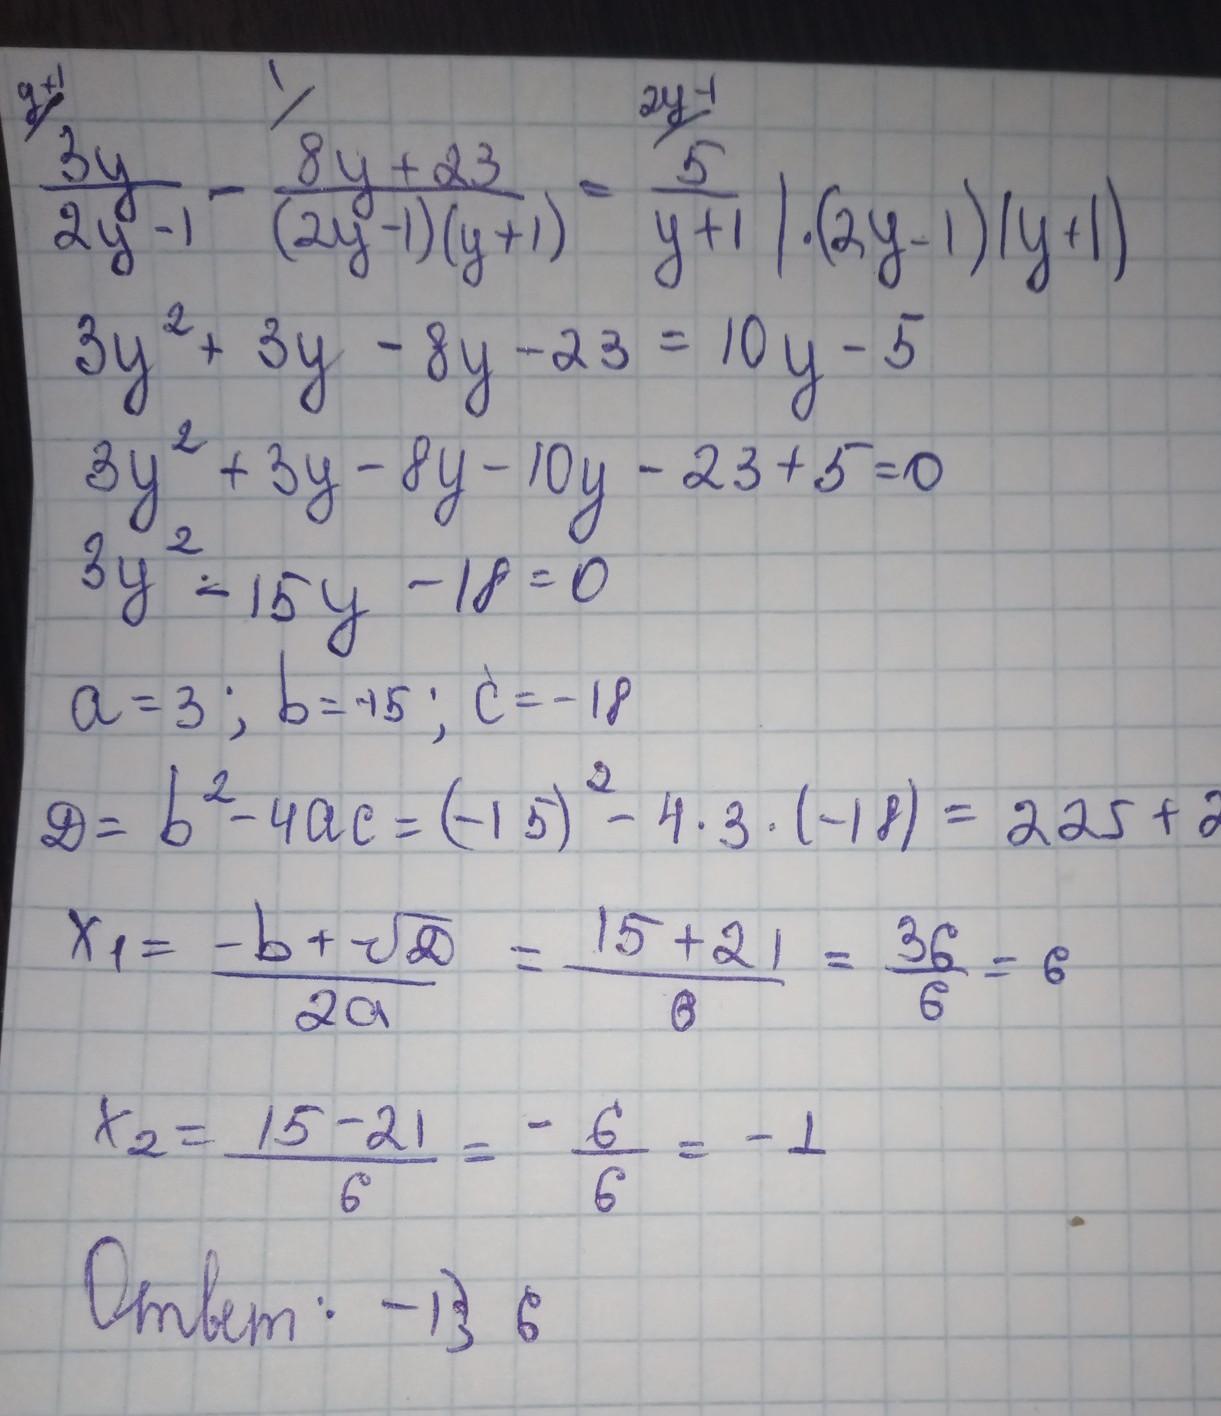 y+1 1 2y-1
3y/(2y-1) - (8y+23)/((2y-1)(y+1)) = 5/(y+1) |·(2y-1)(y+1)
3y² + 3y - 8y - 23 = 10y - 5
3y² + 3y - 8y - 10y - 23 + 5 = 0
3y² - 15y - 18 = 0
a = 3; b = -15; c = -18
D = b² - 4ac = (-15)² - 4·3·(-18) = 225 + 2
x₁ = (-b + √D)/(2a) = (15 + 21)/6 = 36/6 = 6
x₂ = (15 - 21)/6 = -6/6 = -1
Ответ: -1; 6